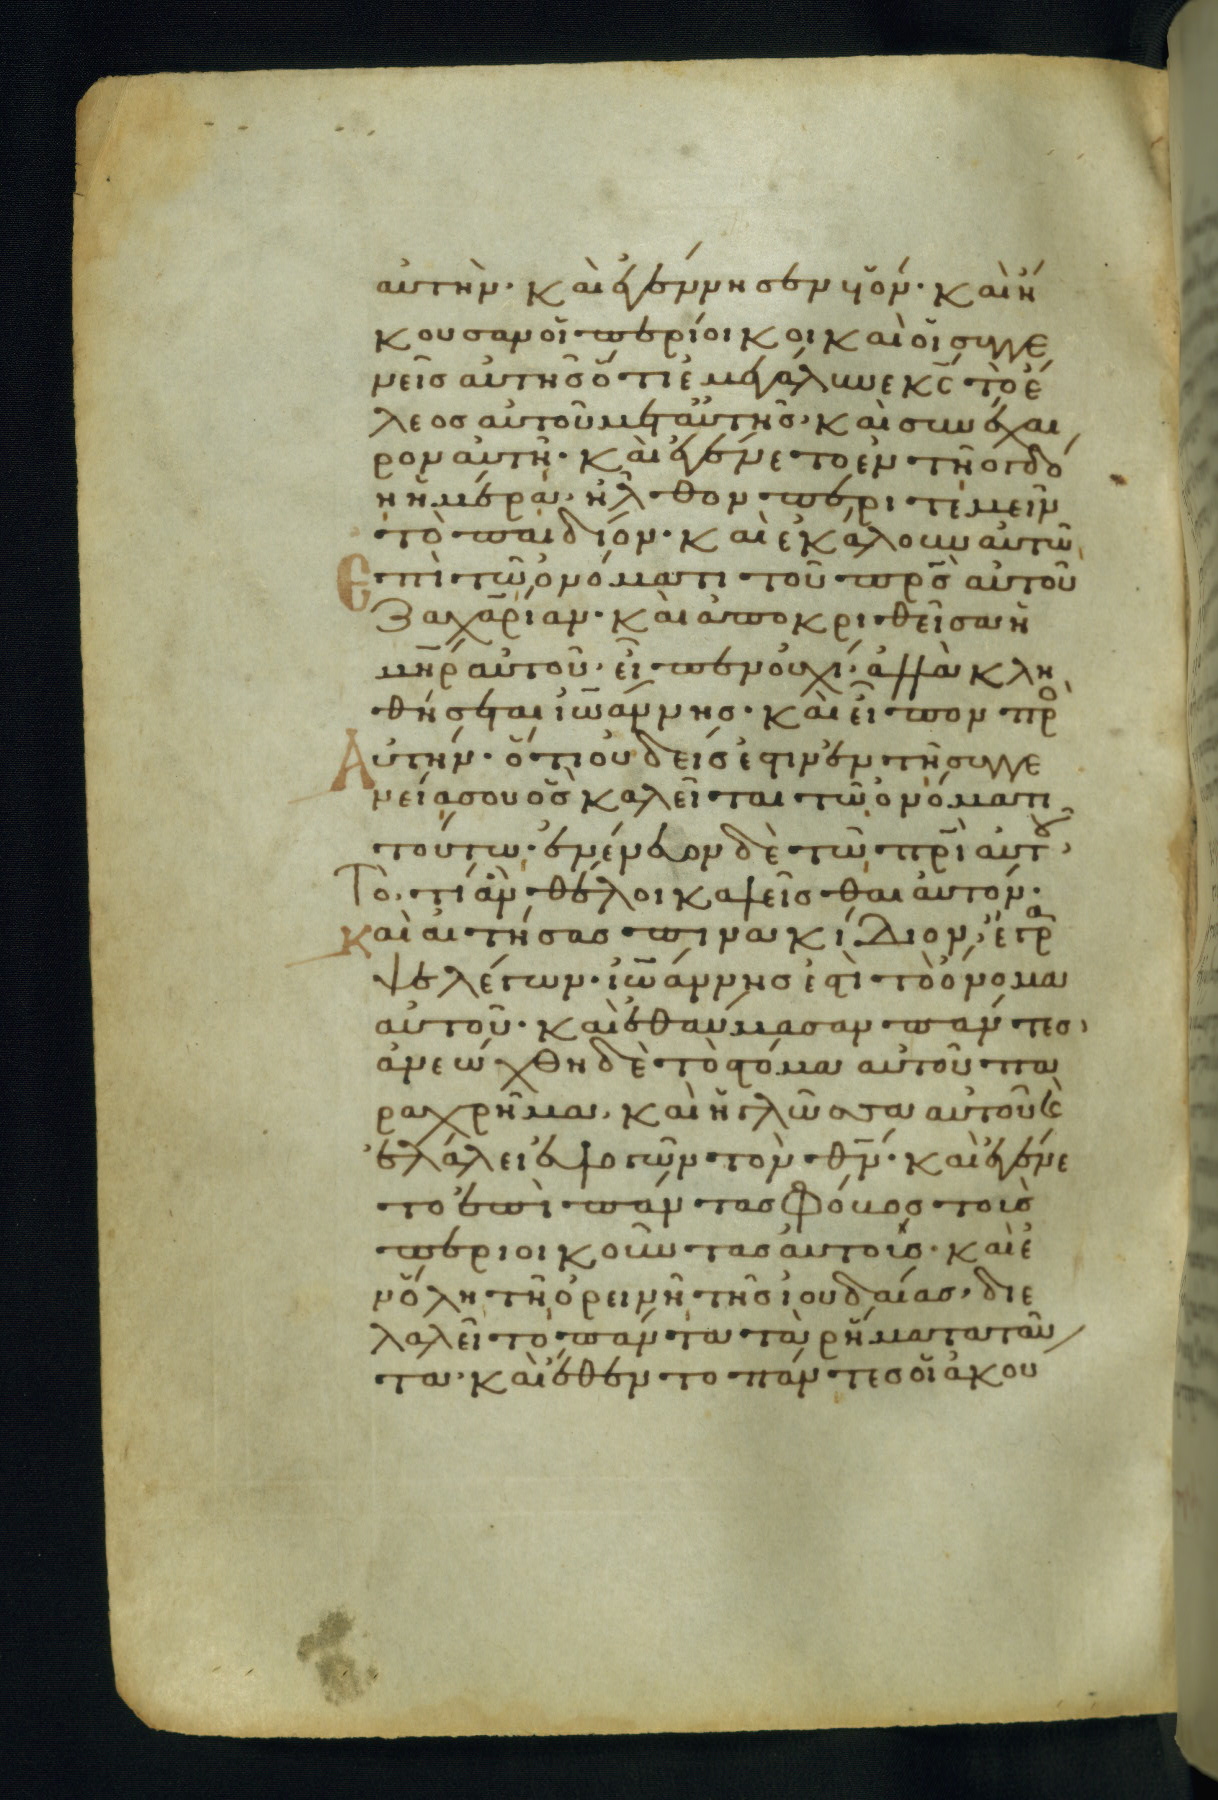 αὐτὴν· καὶ ἐγέννησεν υἱόν· καὶ ἤ
κουσαν οἱ περίοικοι καὶ οἱ συγγε
νεῖς αὐτῆς ὅτι ἐμεγάλυνε κς τὸ ἔ
λεος αὐτοῦ μετ' αὐτῆς· καὶ συνέχαι
ρον αὐτῆ· καὶ ἐγένετο ἐν τῆ ογδό
η ἡμέρα, ἦλθον περιτεμεῖν
τὸ παιδίον· καὶ ἐκάλουν αὐτῶ
ἐπὶ τῶ ὀνόματι τοῦ πρς αὐτοῦ
Ζαχαρίαν· καὶ ἀποκριθεῖσα ἡ
μηρ αὐτοῦ· εἶπεν οὐχί· ἀλλὰ κλη
θήσεται ἰωάννης· καὶ εἶπον πρ
Αὐτήν· ὅτι οὐδείς ἐστιν ἐν τῆ συγγε
νεία σου ὃς καλεῖται τῶ ὀνόματι
τούτω· ἐνένευον δὲ τῶ πρι αὐτ
Τὸ, τί ἂν θέλοι καλεῖσθαι αὐτόν·
καὶ αἰτήσας πινακίδιον, ἔγρα
ψε λέγων· ἰωάννης ἐστὶ τὸ ὄνομα
αὐτοῦ· καὶ ἐθαύμασαν πάντες·
ἀνεώχθη δὲ τὸ στόμα αὐτοῦ πα
ραχρῆμα, καὶ ἡ γλῶσσα αὐτοῦ κ
ἐλάλει εὐλογῶν τὸν θν· καὶ ἐγένε
το ἐπὶ πάντας φόβος τοὺς
περιοικοῦντας αὐτούς· καὶ ἐ
ν ὅλη τῆ ὀρεινῆ τῆς ἰουδαίας, διε
λαλεῖτο πάντα τὰ ρήματα ταῦ
τα· καὶ ἔθεντο πάντες οἱ ἀκού